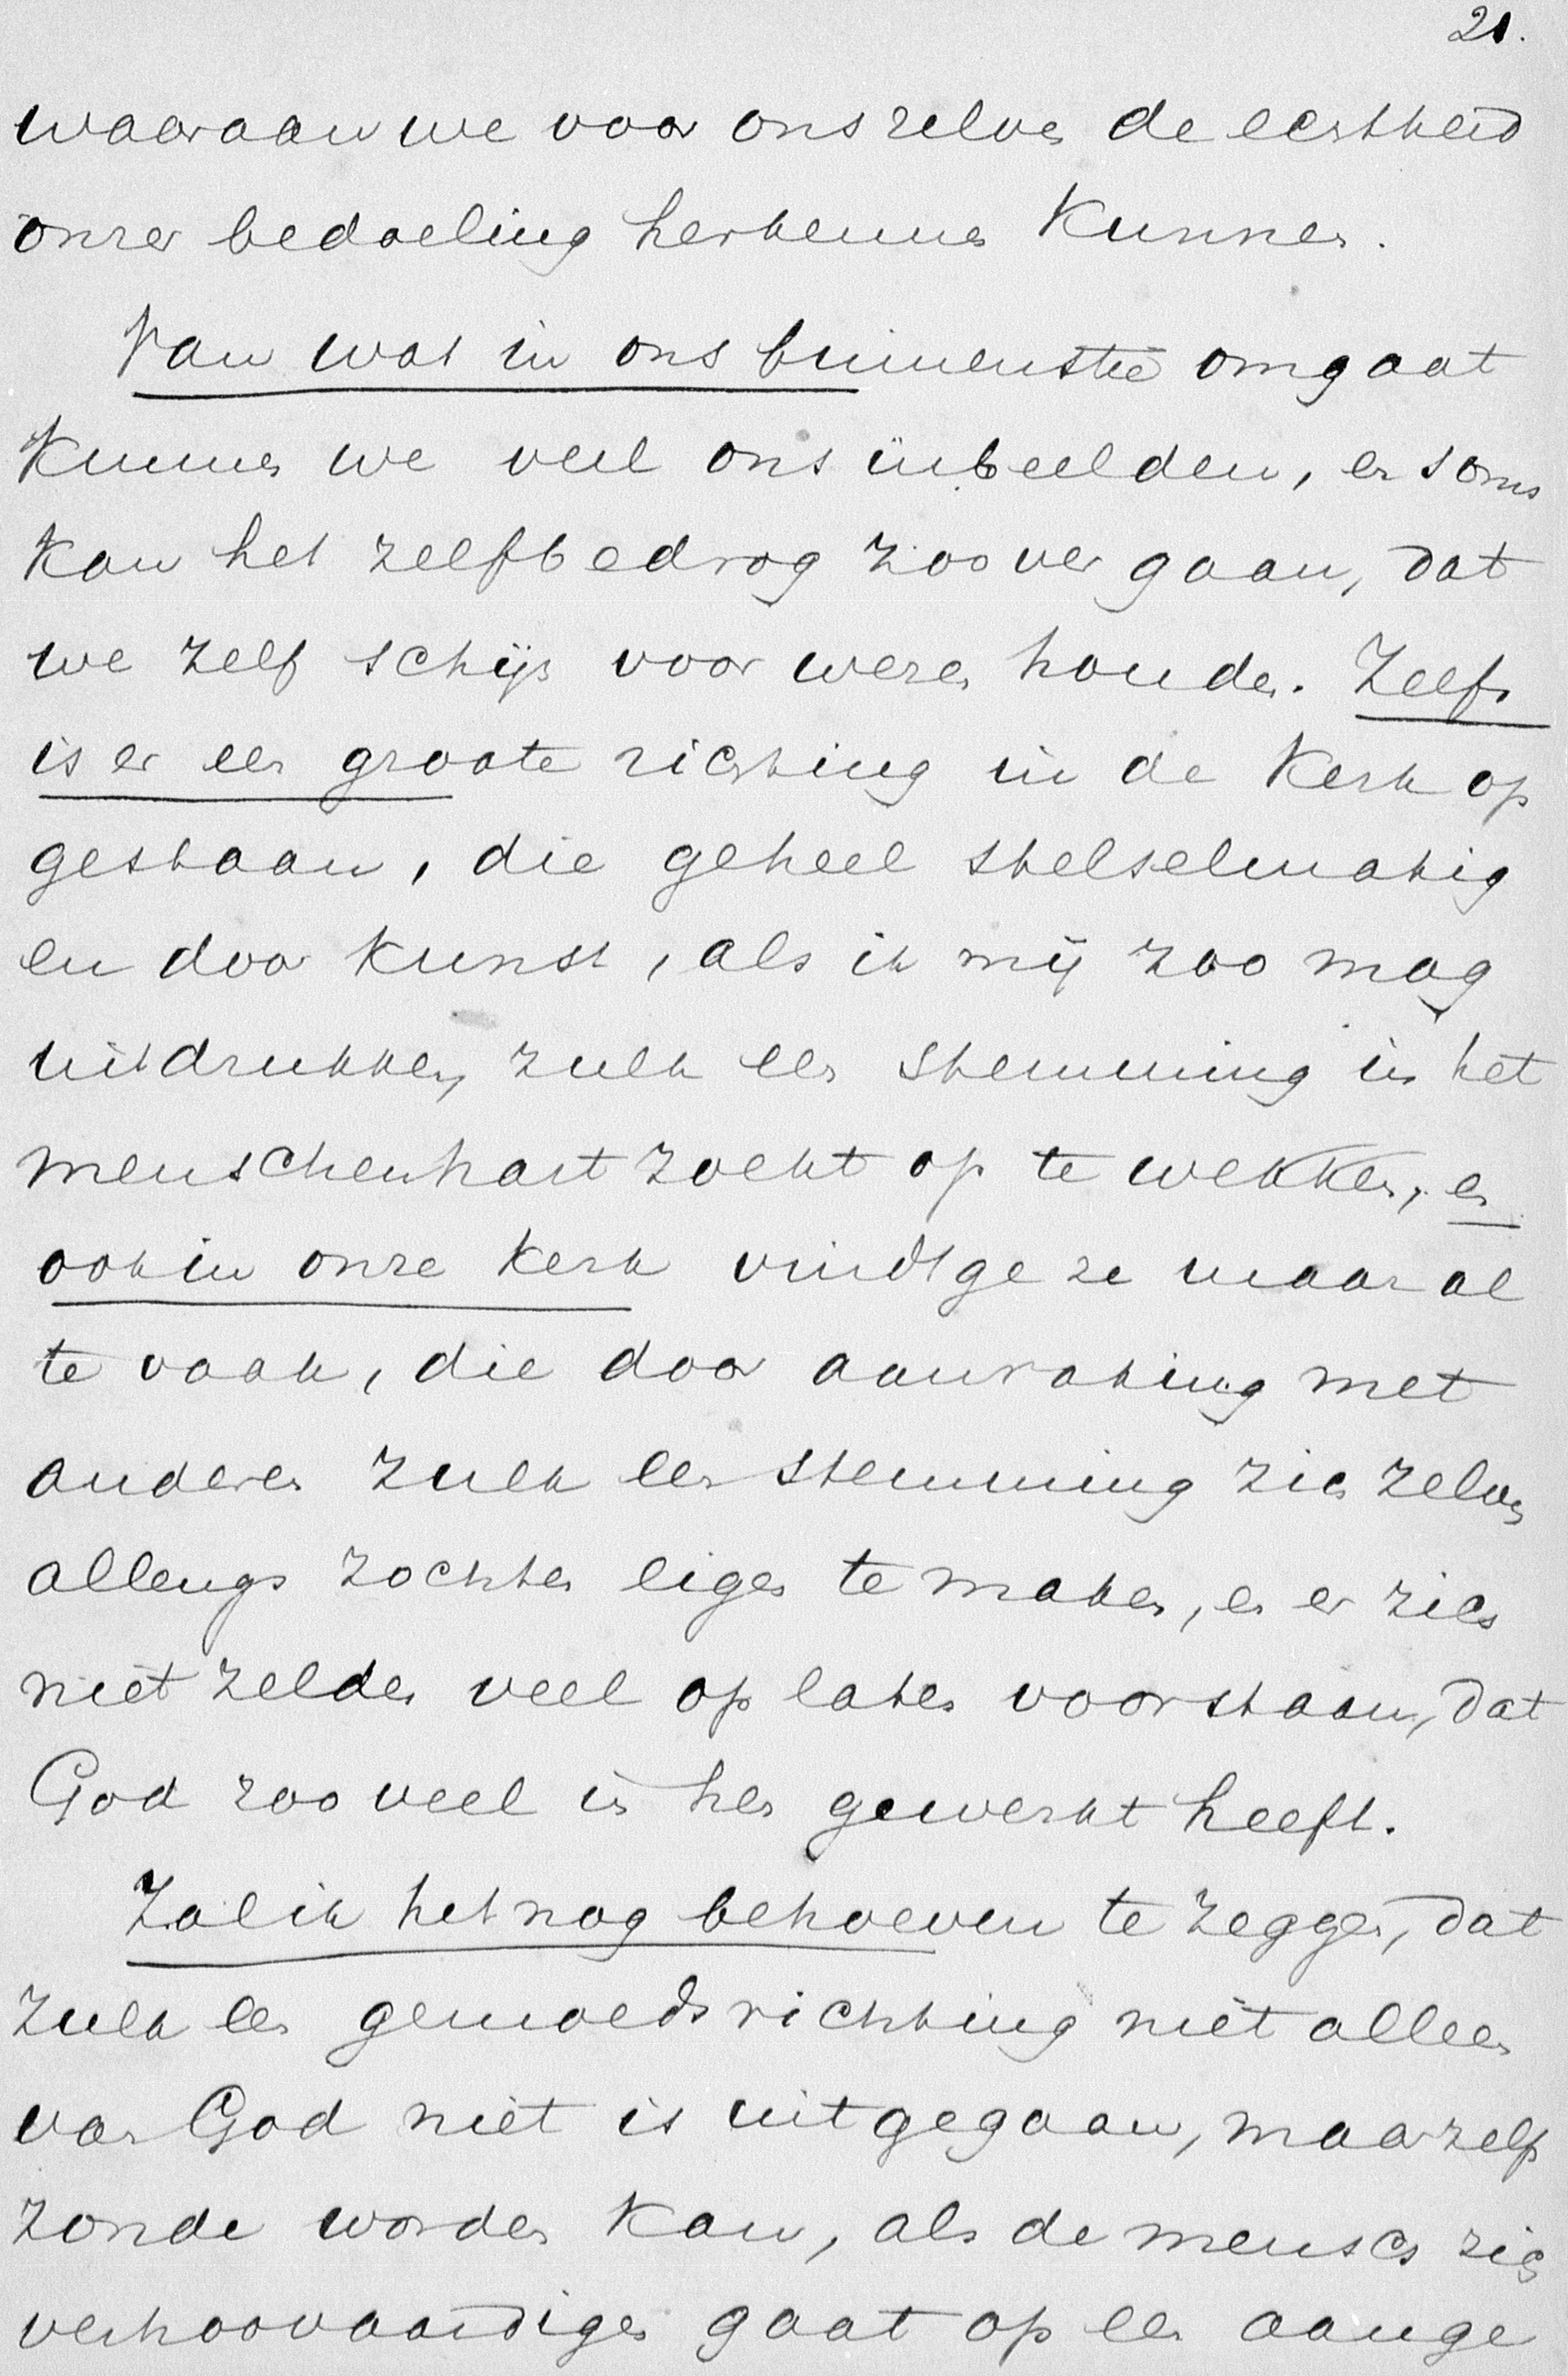 21.
waaraan we voor onszelven de echtheid
onzer bedoeling herkennen kunnen.
Van wat in ons binnenste omgaat
kunnen we veel ons inbeelden, en soms
kan het zelfbedrog zoover gaan, dat
we zelf schijn voor wezen houden. Zelfs
is er een groote richting in de Kerk op
gestaan, die geheel stelselmatig
en door kunst, als ik mij zoo mag
uitdrukken, zulk een stemming in het
menschenhart zoekt op te wekken, en
ook in onze kerk vindt ge ze maar al
te vaak, die door aanraking met
anderen zulk een stemming zich zelven
allengs zochten eigen te maken, en er zich
niet zelden veel op laten voorstaan, dat
God zoo veel in hen gewerkt heeft.
Zal ik het nog behoeven te zeggen, dat
zulk een gemoedsrichting niet alleen
van God niet is uitgegaan, maar zelfs
zonde worden kan, als de mensch zich
verhoovaardigen gaat op een aange